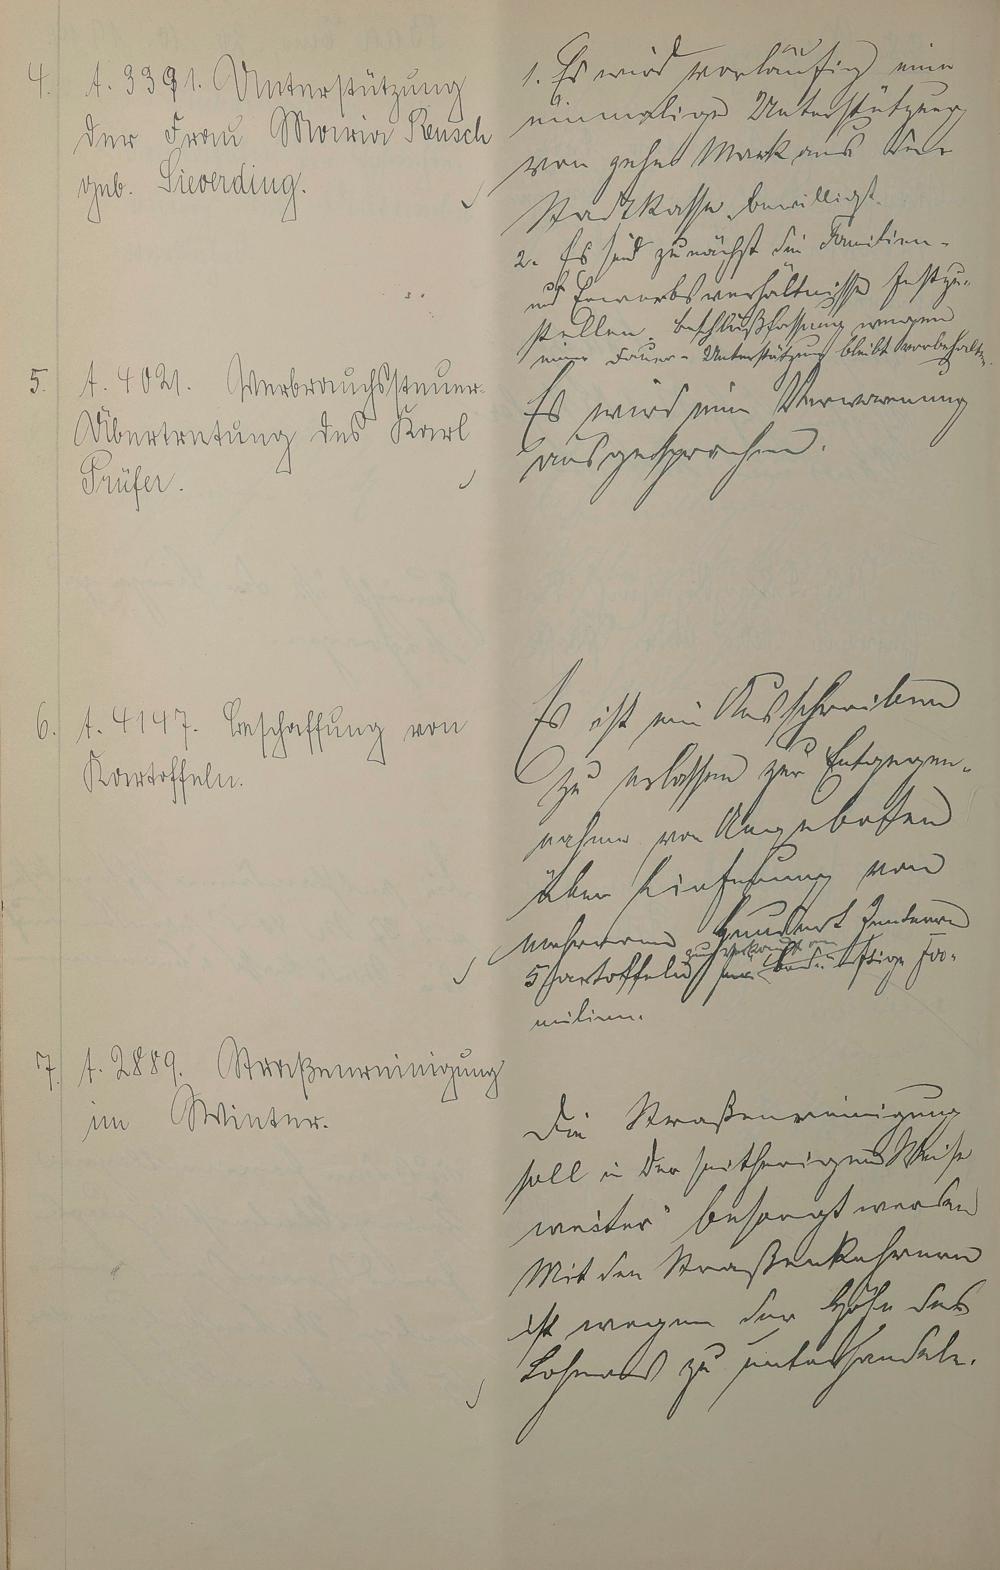 4. A. 3391. Unterstützung
der Frau Maria Reusch
geb. Sieverding.
1. Es wird vorläufig eine
einmalige Unterstützung
von zehn Mark aus der
Stadtkasse bewilligt.
2. Es sind zunächst die Familien-
und Erwerbsverhältnisse festzu-
stellen. Beschlußfassung wegen
einer Dauer-Unterstützung bleibt vorbehalten.
5. A. 4021. Verbrauchssteuer-
Übertretung des Karl
Prüfer.
Es wird eine Verwarnung
ausgesprochen.
6. A. 4147. Beschaffung von
Kartoffeln.
Es ist ein Ausschreiben
zu erlassen zur Entgegen-
nahme von Angeboten
über Lieferung von
mehreren hundert Zentern
Kartoffeln zum Verkauf an
bedürftige Fa-
milien.
7. A. 2889. Straßenreinigung
im Winter.
Die Straßenreinigung
soll in der seitherigen Weise
weiter besorgt werden
Mit den Straßenkehrern
ist wegen der Höhe des
Lohnes zu unterhandeln.